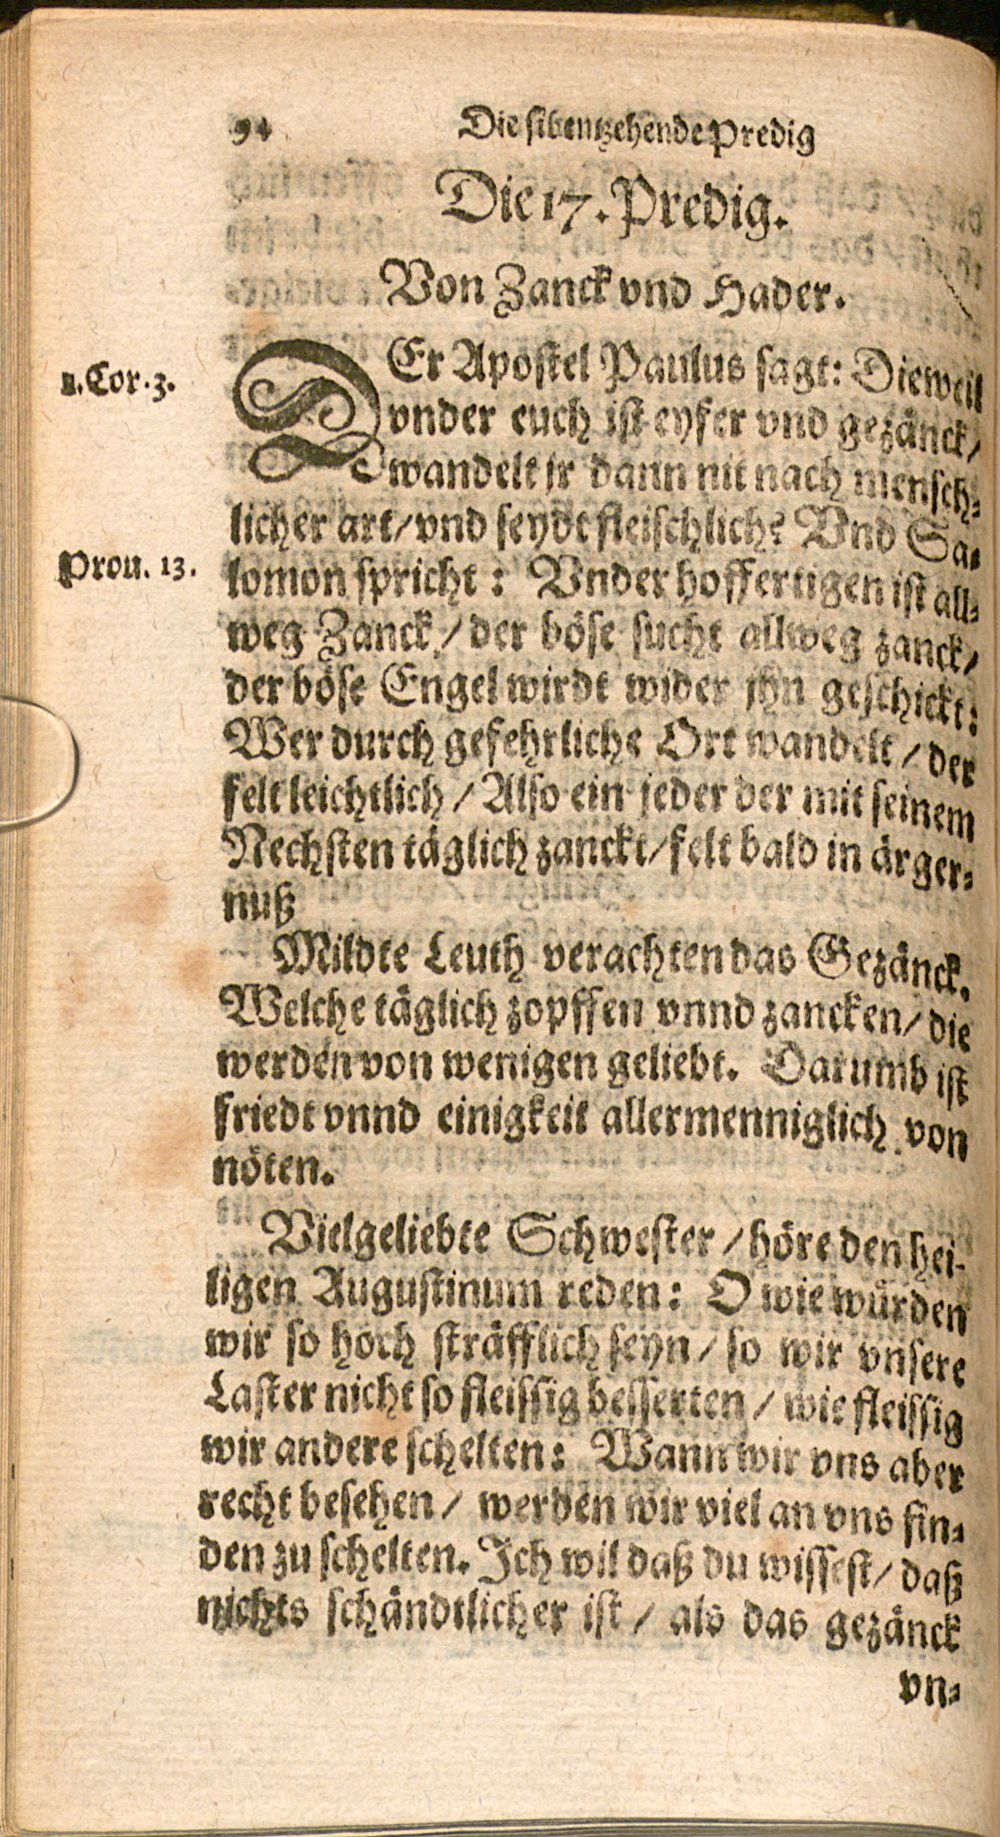 94 Die sibentzehende Predig
Die 17. Predig.
Von Zanck vnd Hader.
1. Cor. 3.
DEr Apostel Paulus sagt: Dieweil
vnder euch ist eyfer vnd gezänck/
wandelt jr dann nit nach mensch-
licher art/ vnd seydt fleischlich? Vnd Sa-
Prou. 13.
lomon spricht: Vnder hoffertigen ist all-
weg Zanck/ der böse sucht allweg zanck/
der böse Engel wirdt wider jhn geschickt:
Wer durch gefehrliche Ort wandelt/ der
felt leichtlich/ Also ein jeder der mit seinem
Nechsten täglich zanckt/ felt bald in ärger-
nuß
Mildte Leuth verachten das Gezänck.
Welche täglich zopffen vnnd zancken/ die
werden von wenigen geliebt. Darumb ist
friedt vnnd einigkeit allermenniglich von
nöten.
Vielgeliebte Schwester/ höre den hei-
ligen Augustinum reden: O wie würden
wir so hoch sträfflich seyn/ so wir vnsere
Laster nicht so fleissig besserten/ wie fleissig
wir andere schelten: Wann wir vns aber
recht besehen/ werden wir viel an vns fin-
den zu schelten. Ich wil daß du wissest/ daß
nichts schändtlicher ist/ als das gezänck
vn-